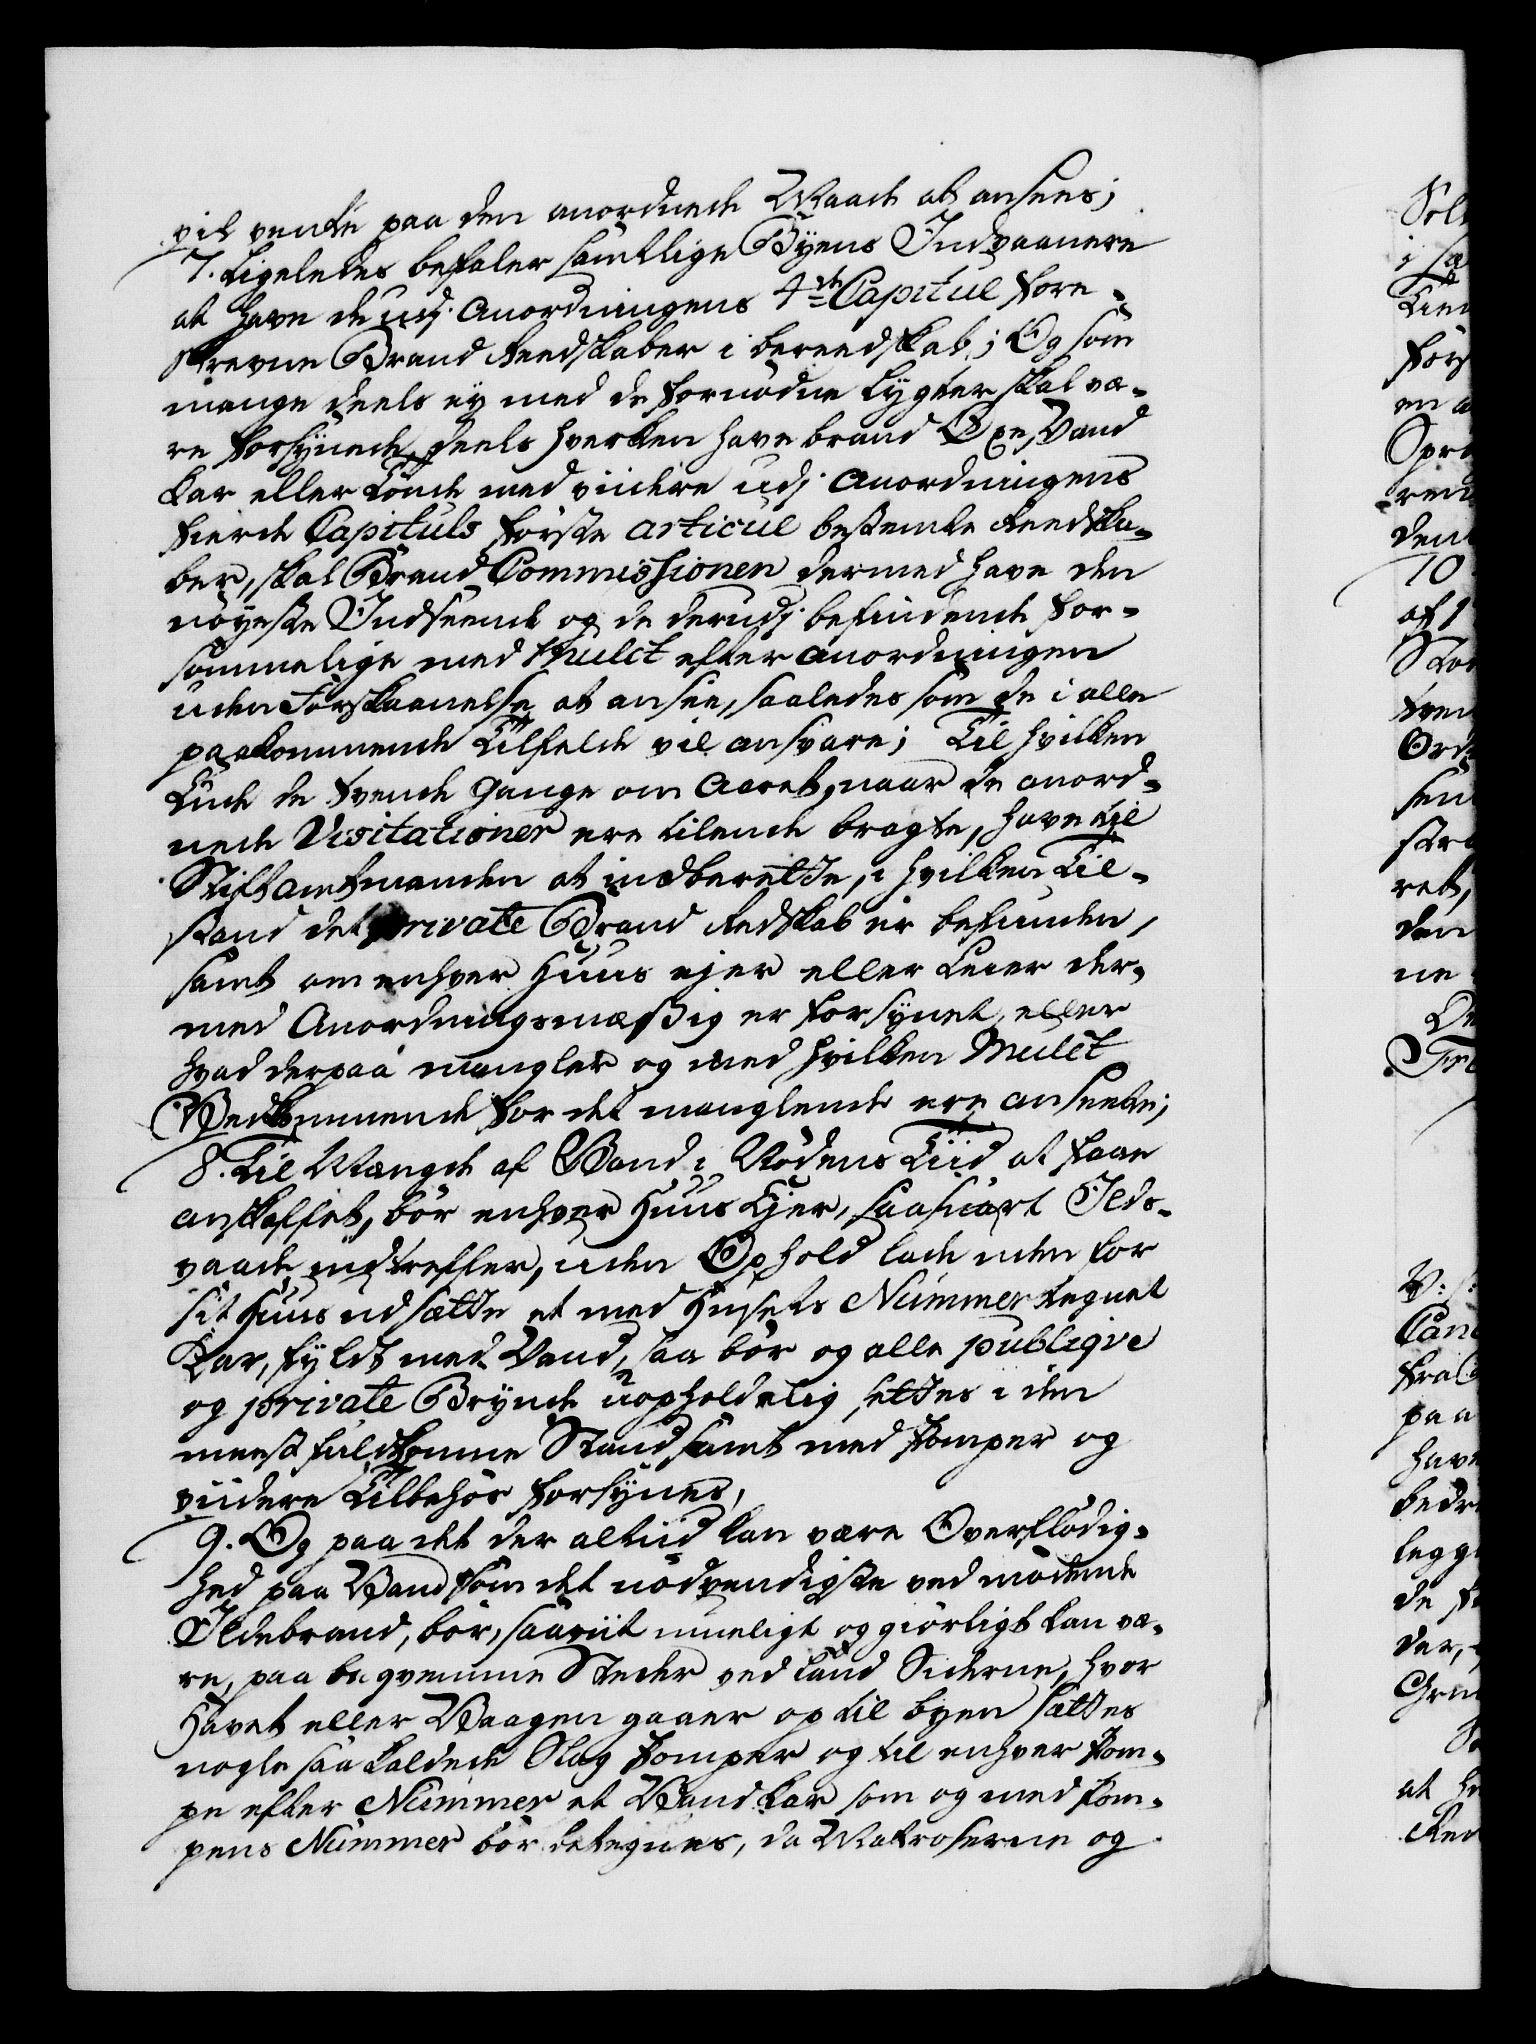 vil vente paa den anordnede Maade at ansees;
7. Ligeledes befales samtlige Byens Indvaanere
at have de udj Anordningens 4de Capitul fore-
skrevne Brand Reedskaber i bereedskab; Og som
mange deels ej med de fornødne Lygter skal væ-
re forsynede, deels hverken have brand Øxe, Vand
Kar eller Tønde med viidere udj Anordningens
fierde Capituls første articul bestemte Reedska-
ber, skal Brand Commissionen dermed have den
nøyeste Indseende og de derudj befindende for-
sømmelige med Mulct efter Anordningen
uden Forskaanelse at ansee, saaledes som de i alle
paakommende Tilfælde vil ansvare; Til hvilken
Ende de tvende gange om Aaret, naar de anord-
nede Visitationer ere tilende bragte, have til
Stiftamtmanden at indberette, i hvilken Til-
stand det private Brand Redskab er befunden,
samt om enhver Huus ejer eller Leier der-
med Anordningsmæssig er forsynet, eller
hvad derpaa mangler og med hvilken Mulct
Vedkommende for det manglende ere anseete;
8. Til Mængde af Vand i Nødens Tiid at faae
anskaffet, bør enhver Huus Ejer, saasnart Ilds-
vaade indtreffer, uden Ophold lade uden for
sit Huus udsætte et med Husets Nummer tegnet
Kar, fyldt med Vand, saa bør og alle publiqve
og private Brynde uopholdelig settes i den
meest fuldkomne Stand samt med Pomper og
viidere Tilbehør forsynes,
9. Og paa det der altiid kan være Overflødig-
hed paa Vand som det nødvendigste ved mødende
Ildebrand, bør, saaviit mueligt og giørligt kan væ-
re, paa beqvemme Steder ved Land Siderne, hvor
Havet eller Vaagen gaaer op til byen sættes
nogle saa kaldede Slag Pomper og til enhver Pom-
pe efter Nummer et Vand Kar som og med Pom-
pens Nummer bør betegnes, da Matroserne og